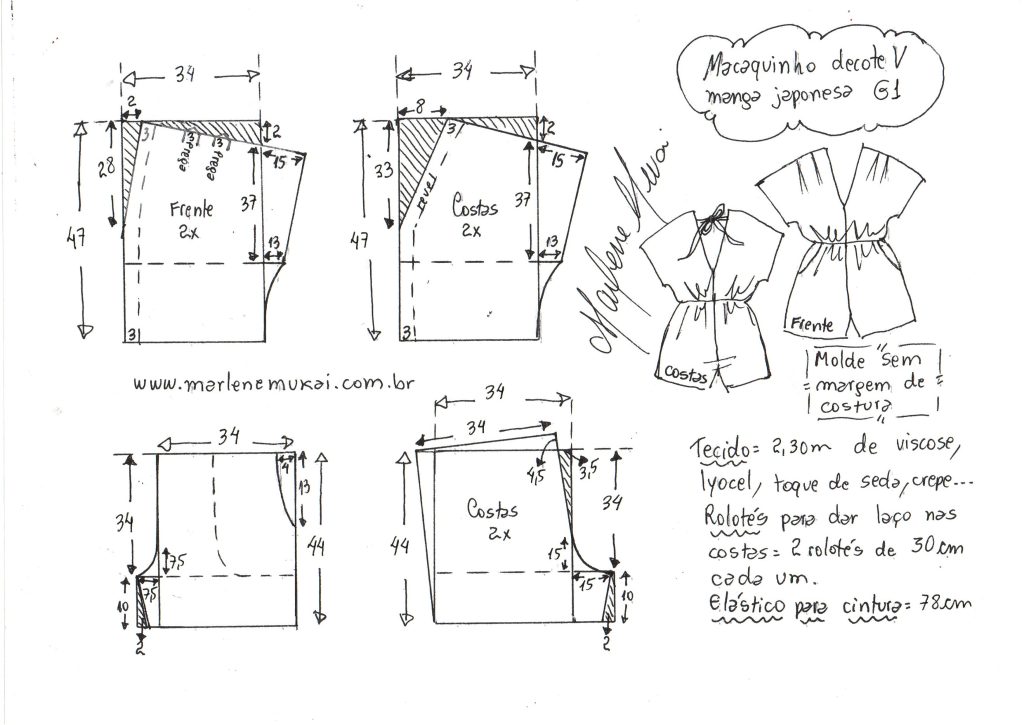 Macaquinho decote V
manga japonesa G1
34
2
3
2
prega
3
prega
3
15
28
47
Frente
2x
37
13
3
34
8
3
2
15
33
47
revel
Costas
2x
37
13
Marlene Mukai
costas
Frente
Molde "sem
margem de
costura
www.marlenemukai.com.br
34
4
13
34
44
7,5
7,5
10
2
34
34
4,5
3,5
Costas
2x
34
44
15
15
10
2
Tecido = 2,30m de viscose,
lyocel, toque de seda, crepe...
Rolotés para dar laço nas
costas = 2 rolotés de 30 cm
cada um.
Elástico para cintura = 78cm